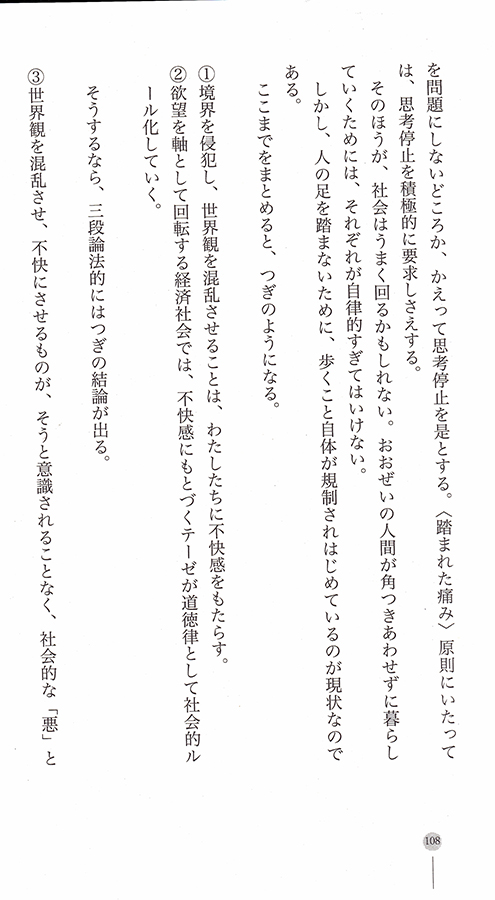 を問題にしないどころか、かえって思考停止を是とする。〈踏まれた痛み〉原則にいたって
は、思考停止を積極的に要求しさえする。
そのほうが、社会はうまく回るかもしれない。おおぜいの人間が角つきあわせずに暮らし
ていくためには、それぞれが自律的すぎてはいけない。
しかし、人の足を踏まないために、歩くこと自体が規制されはじめているのが現状なので
ある。
ここまでをまとめると、つぎのようになる。
①境界を侵犯し、世界観を混乱させることは、わたしたちに不快感をもたらす。
②欲望を軸として回転する経済社会では、不快感にもとづくテーゼが道徳律として社会的ル
ール化していく。
そうするなら、三段論法的にはつぎの結論が出る。
③世界観を混乱させ、不快にさせるものが、そうと意識されることなく、社会的な「悪」と
108